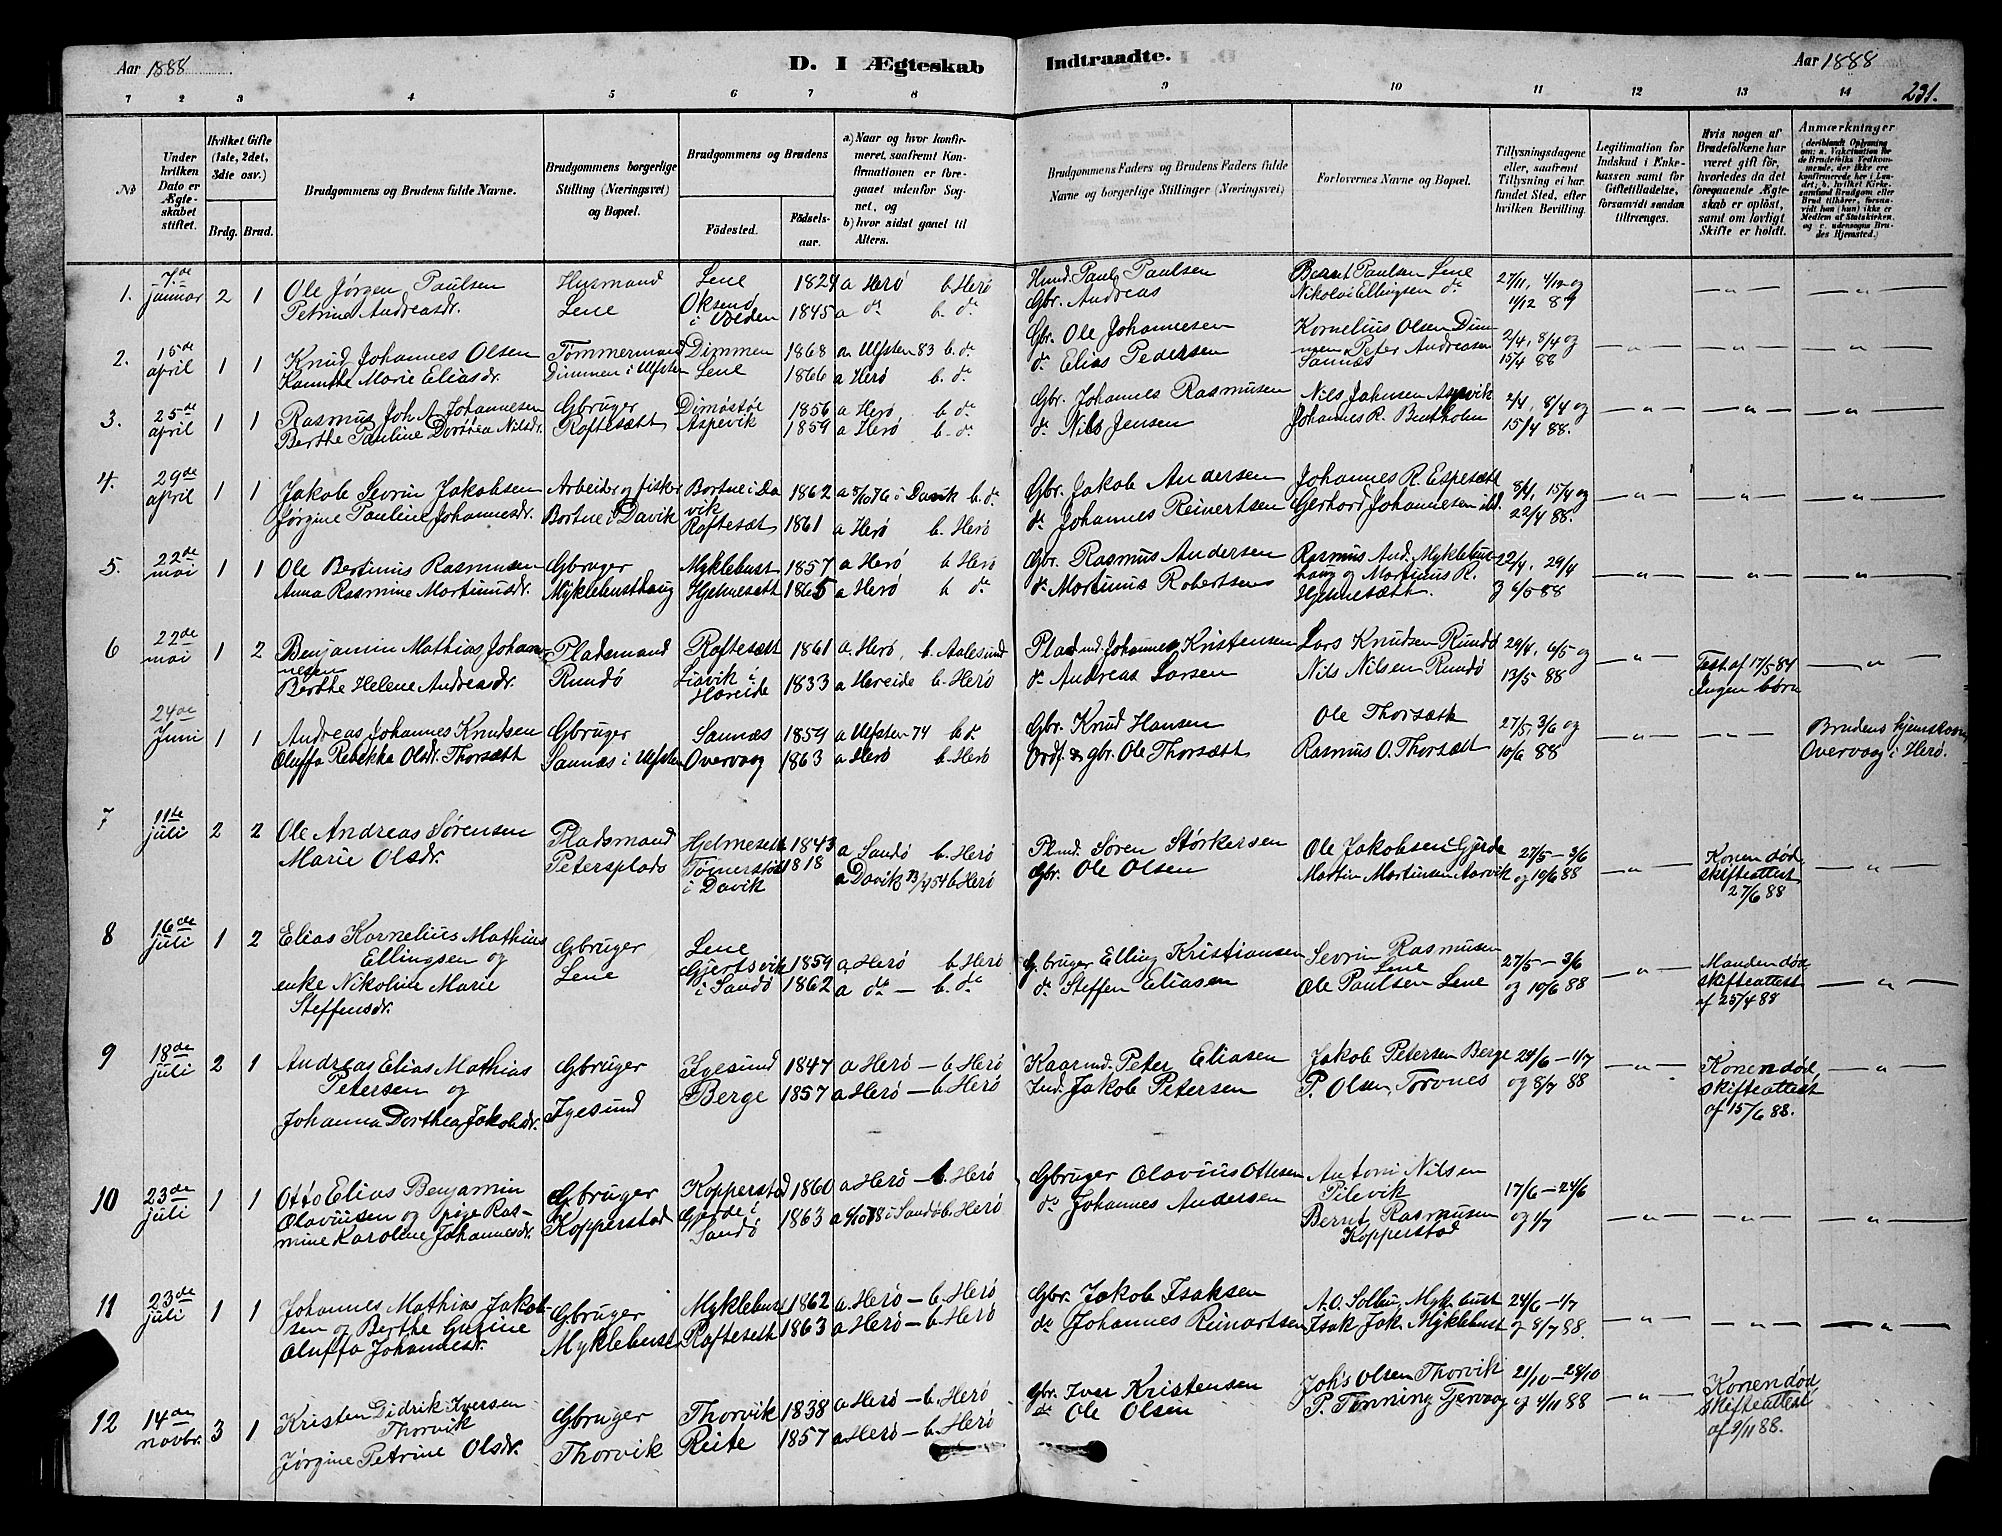 Aar 1888
D. I Ægteskab
Indtraadte.
Aar 1888
231.
1 2 3 4 5 6 7 8 9 10 11 12 13 14
No
Under hvilken Dato er Ægteskabet stiftet.
Hvilket Gifte (1ste, 2det, 3die osv.)
Brdg. Brud.
Brudgommens og Brudens fulde Navne.
Brudgommens borgerlige Stilling (Næringsvei) og Bopæl.
Brudgommens og Brudens
Födested.
Födselsaar.
a) Naar og hvor konfirmeret, saafremt Konfirmationen er foregaaet udenfor Sognet, og
b) hvor sidst gaaet til Alters.
Brudgommens Faders og Brudens Faders fulde Navne og borgerlige Stillinger (Næringsvei)
Forlovernes Navne og Bopæl.
Tillysningsdagene eller, saafremt Tillysning ei har fundet Sted, efter hvilken Bevilling.
Legitimation for Indskud i Enkekassen samt for Giftetilladelse, forsaavidt saadan tiltrænges.
Hvis nogen af Brudefolkene har været gift før, hvorledes da det foregaaende Ægteskab er oplöst, samt om lovligt Skifte er holdt.
Anmærkninger
1. 7de januar 2 1 Ole Jørgen Paulsen Husmand Lene 1824 a Herø b Herø Husmd. Paul Paulsen Bernt Paulsen Lene 27/11, 4/12 og
Petrine Andreasdr. Lene Oksend i Volden 1845 a do b. do Gbr. Andreas Nikolai Ellingsen do 11/12 87
2. 15de april 1 1 Knud Johannes Olsen Tømmermand Dimmen 1868 a Ulfsten 83 b. do Gbr. Ole Johannesen Kornelius Olsen Dimmen 2/4, 8/4 og
Marie Eliasdr. Dimmen i Ulfsten Lene 1866 a Herø b. do do Elias Pedersen Peter Andreasen Sannæs 15/4 88
3. 25de april 1 1 Rasmus Joh. A. Johannesen Gbruger Dimøstøl 1856 a Herø b. do Gbr. Johannes Rasmusen Nils Jahnsen Aspevik 2/4, 8/4 og
Berthe Pauline Dorthea Nilsdr. Roftesætt Aspevik 1859 a Herø b. do do Nils Jensen Johannes R. 15/4 88.
4. 29de april 1 1 Jakob Sevrin Jakobsen Arbeider og fisker Bortne i Davik 1862 a 8/10 76 i Davik b. do Gbr. Jakob Andersen Johannes R. Espesætt 8/4, 15/4 og
Jørgine Pauline Johannesdr. Bortne i Davik Roftesæt 1861 a Herø b. Herø do Johannes Reinertsen Gerhard Johannesen ibd. 22/4 88.
5. 22de mai 1 1 Ole Bertinus Rasmusen Gbruger Myklebust 1857 a Herø b Herø Gbr. Rasmus Andersen Rasmus And. Myklebusthaug og 22/4, 29/4
Anna Rasmine Martinusdr. Myklebusthaug Hjelmesett 1865 a Herø b do do Martinus Robertsen Martinus R. Hjelmesætt. og 6/5 88
6 22de mai 1 2 Benjamin Mathias Johannesen Pladsmand Roftesætt 1861 a Herø, b. Aalesund Pladsmd. Johannes Kristensen Lars Knudsen Rundø 29/4, 6/5 og
Berthe Helene Andreasdr. Rundø Liavik i Hareide 1833 a Hareide b. Herø do Andreas Larsen Nils Nilsen Rundø 13/5 88 Test af 17/5 87 Ingen børn
24de Juni 1 1 Andreas Johannes Knudsen Gbruger Sannæs 1859 a Ulfsten 74 b. do Gbr. Knud Hansen Ole Thorsætt 27/5, 3/6 og Brudens hjemstavn
Oluffa Rebekka Olsdr. Thorsætt Sannæs i Ulfsten Overvaag 1863 a Herø b. Herø Ordf. & gbr. Ole Thorsætt Rasmus O. Thorsætt 10/6 88 Overvaag i Herø.
7 11te juli 2 2 Ole Andreas Sørensen Pladsmand Hjelmeseth 1843 a Sandø b. Herø Plmd. Søren Størkersen Ole Jakobsen Gjerde 27/5 – 3/6 Konen død
Marie Olsdr. Petersplads i Davik 1818 a Davik 23/4 54 b Herø Gbr. Ole Olsen Martin Martinsen Aarvik og 10/6 88 skifteattest 27/6 88
8 16de juli 1 2 Elias Kornelius Mathias Ellingsen og Gbruger Lene 1859 a Herø b Herø G.bruger Elling Kristiansen Sevrin Rasmusen Lene 27/5 – 3/6 Manden død
enke Nikoline Marie Steffensdr. Lene Gjertsvik i Sandø 1862 a do – b. do do Steffen Eliasen Ole Paulsen Lene og 10/6 88 skifteattest af 25/4 88
9 18de juli 2 1 Andreas Elias Mathias Petersen og Gbruger Igesund 1847 a Herø – b. Herø Kaarmd. Peter Eliasen Jakob Petersen Berge 24/6 – 1/7 Konen død,
Johanna Dorthea Jakobsdr. Igesund Berge 1857 a Herø – b Herø Ind. Jakob Petersen P. Olsen, Torvnes og 8/7 88 skifteattest af 15/6 88.
10 23de juli 1 1 Otto Elias Benjamin Gbruger Kopperstad 1860 a Herø – b. Herø Gbruger Olavius Ottesen Antoni Nilsen Pilevik 17/6 – 24/6
Olaviusen og pige Rasmine Karoline Johannesdr. Kopperstad Gjerde i Sandø 1863 a 6/10 78 i Sandø b. Herø do Johannes Andersen Bernt Rasmusen Kopperstad og 1/7
11 23de juli 1 1 Johannes Mathias Jakobsen og Berthe Gurine Gbruger Myklebust 1862 a. Herø – b. Herø Gbr. Jakob Isaksen A. O. Solbu, Myk.bust 24/6 – 1/7
Oluffa Johannesdr. Myklebust Rofteseth 1863 a Herø – b Herø do Johannes Reinartsen Isak Jak. Myklebust og 8/7 88.
12 14de novbr. 3 1 Kristen Didrik Iversen Thorvik Gbruger Thorvik 1838 a Herø – b. Herø Gbr. Iver Kristensen Johs Olsen Thorvik 21/10 – 28/10 Konen død
Jørgine Petrine Olsdr. Thorvik Reite 1857 a Herø – b. Herø do Ole Olsen P. Tenning Tjervaag og 4/11 88 skifteattest af 9/11 88.